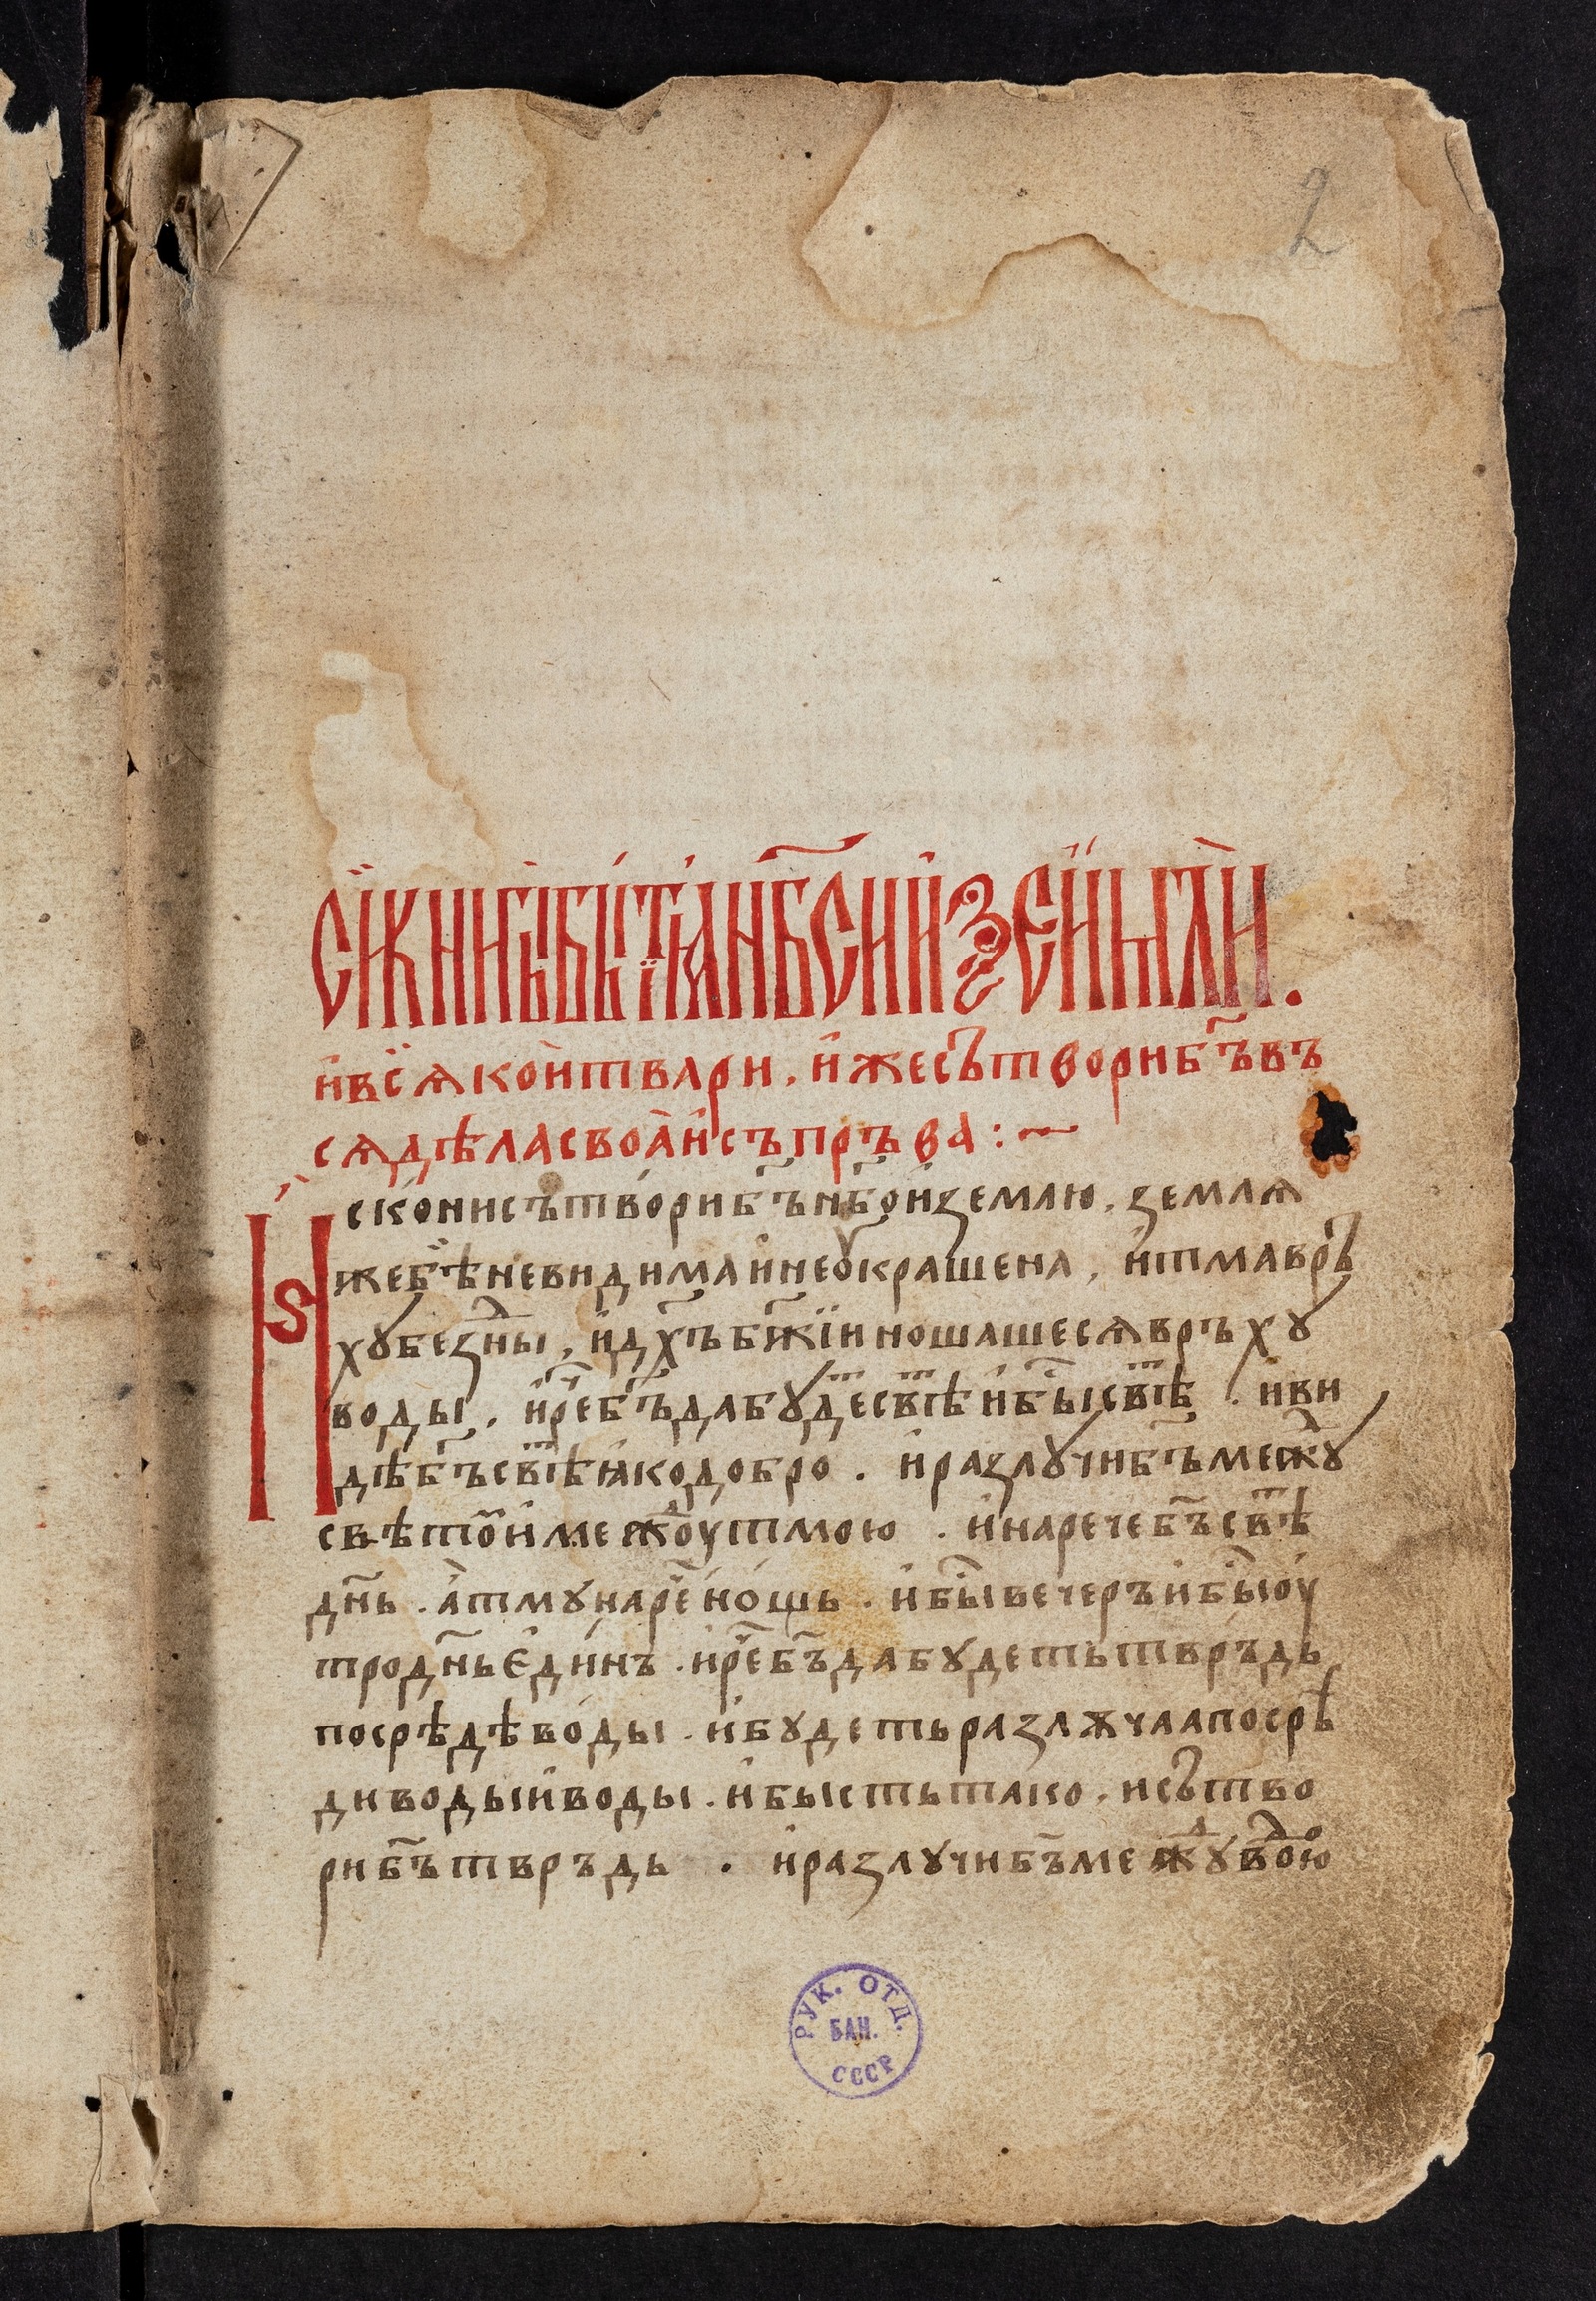 2
сїкнигыбытїꙗнб҃сиизеиылѝ.
ивсѧкоитвари. ижесътворибг҃ъвъ
сѧдѣласвоаисъпръва :~
Искониисътворибг҃ънб҃оиземлю. землѧ
жебѣневидимаинеоукрашена, итмаврь
хꙋбезⷣны, идх҃ъбж҃їиношашесѧвръхꙋ
воды. ирⷱ҇ебг҃ъдабꙋдⷮесвⷮѣибыⷭ҇свⷮѣ. иви
дѣбг҃ъсвⷮѣꙗкодобро. иразлꙋчибг҃ъмежⷣꙋ
свѣтоⷨимежⷣоутмою. инаречебг҃ъсвⷮѣ
дн҃ь. атмꙋнарⷱ҇енощь. ибыⷭ҇вечеръибыⷭ҇оу
тродн҃ьединъ. ирⷱ҇ебг҃ъдабꙋдетьтвръдь
посрѣдѣводы. ибꙋдетьразлѫчаапосрѣ
диводыиводы. ибыстьтако. исътво
рибг҃ътвръдь. иразлꙋчибг҃ъмежⷣꙋвоⷣю
РУК. ОТД.
БАН.
СССР